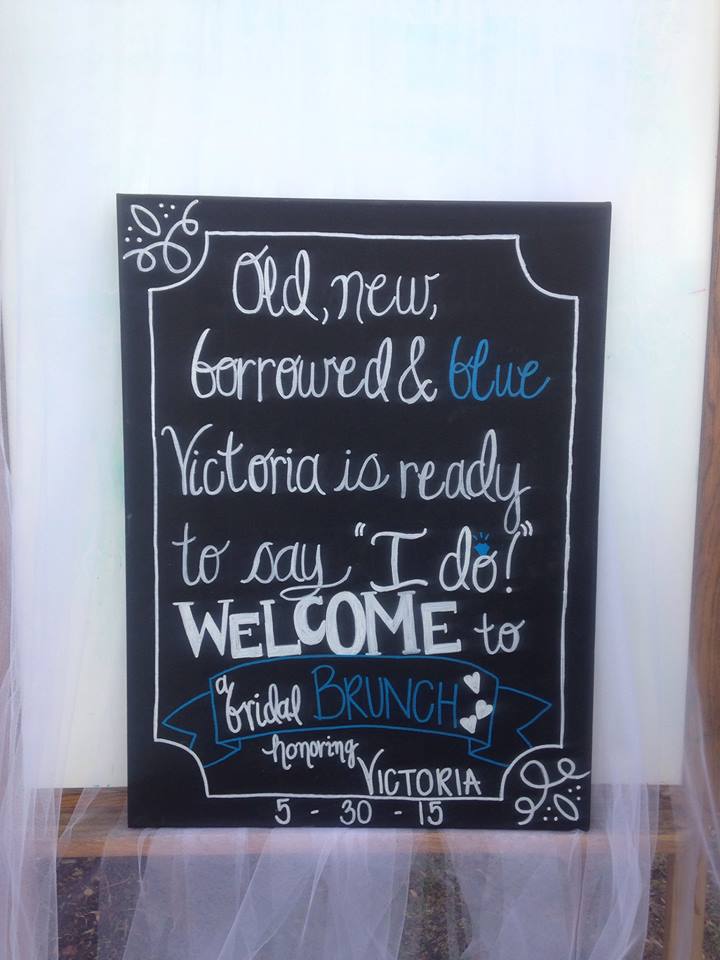 Old, new,
borrowed & blue
Victoria is ready
to say "I do!"
WELCOME to
a bridal BRUNCH
honoring VICTORIA
5 - 30 - 15